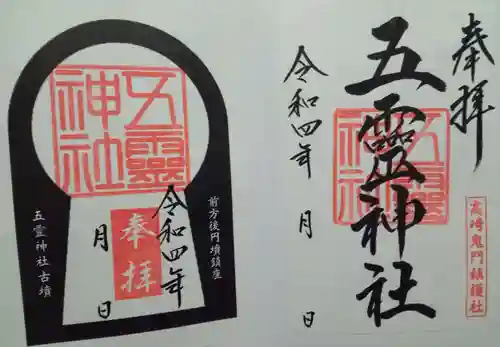 奉拝
五靈神社
五靈神社
高崎鬼門鎮護社
令和四年 月 日
五靈神社
前方後円墳鎮座
令和四年 月 日
奉拝
五霊神社古墳